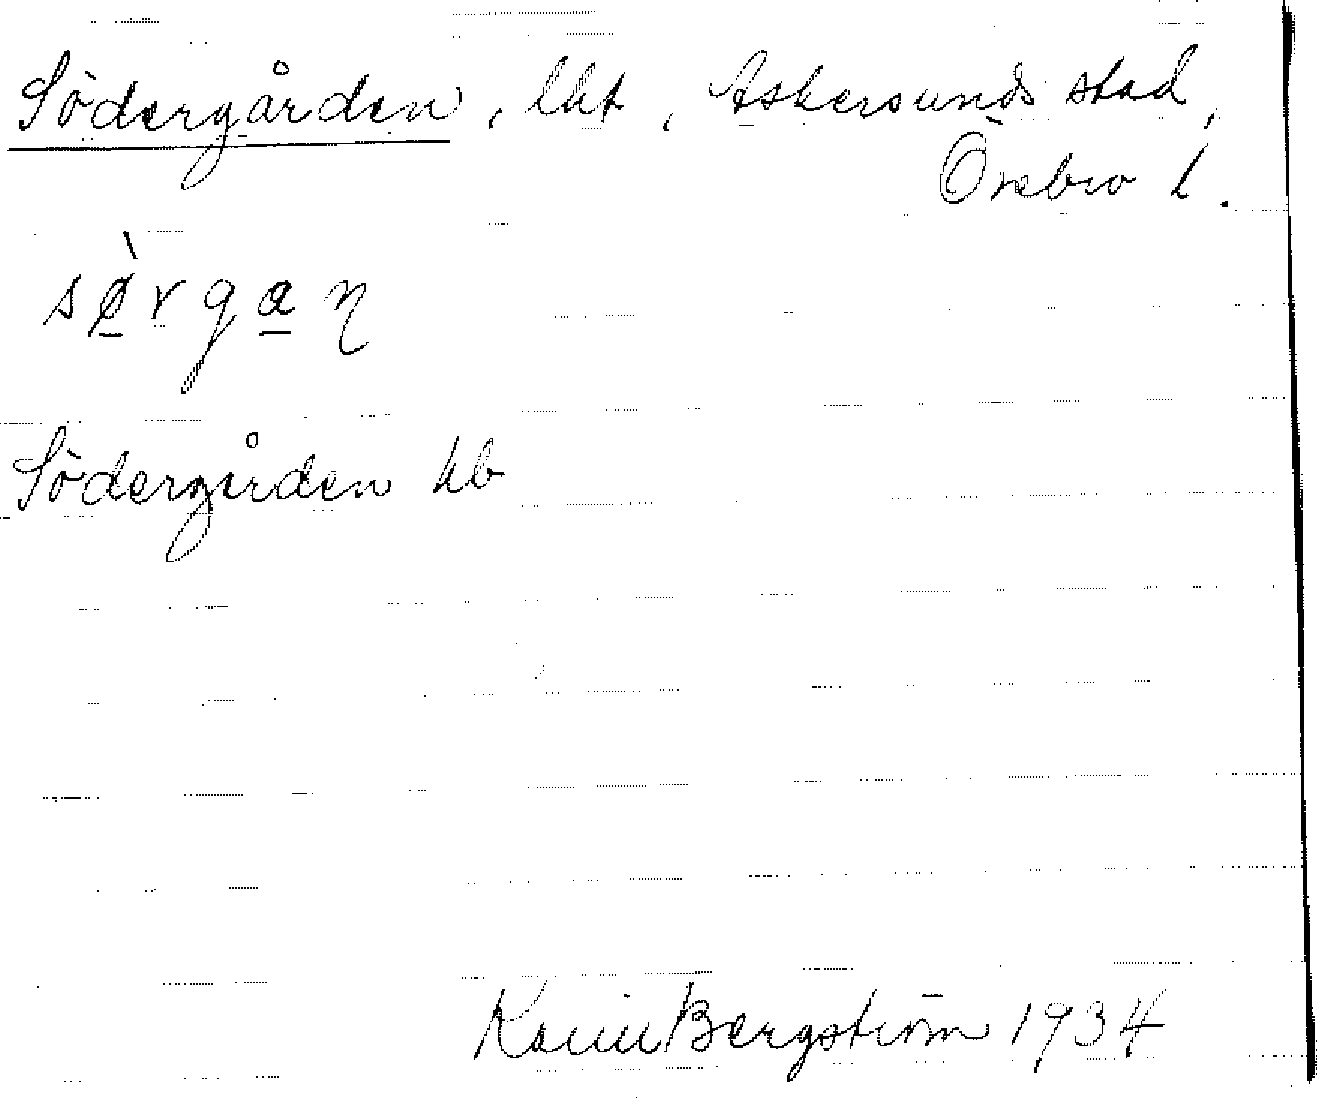 Södergården, lht, Askersunds stad,
Örebro l.
sø̀rgaɳ
Södergården kb
Karin Bergström 1934